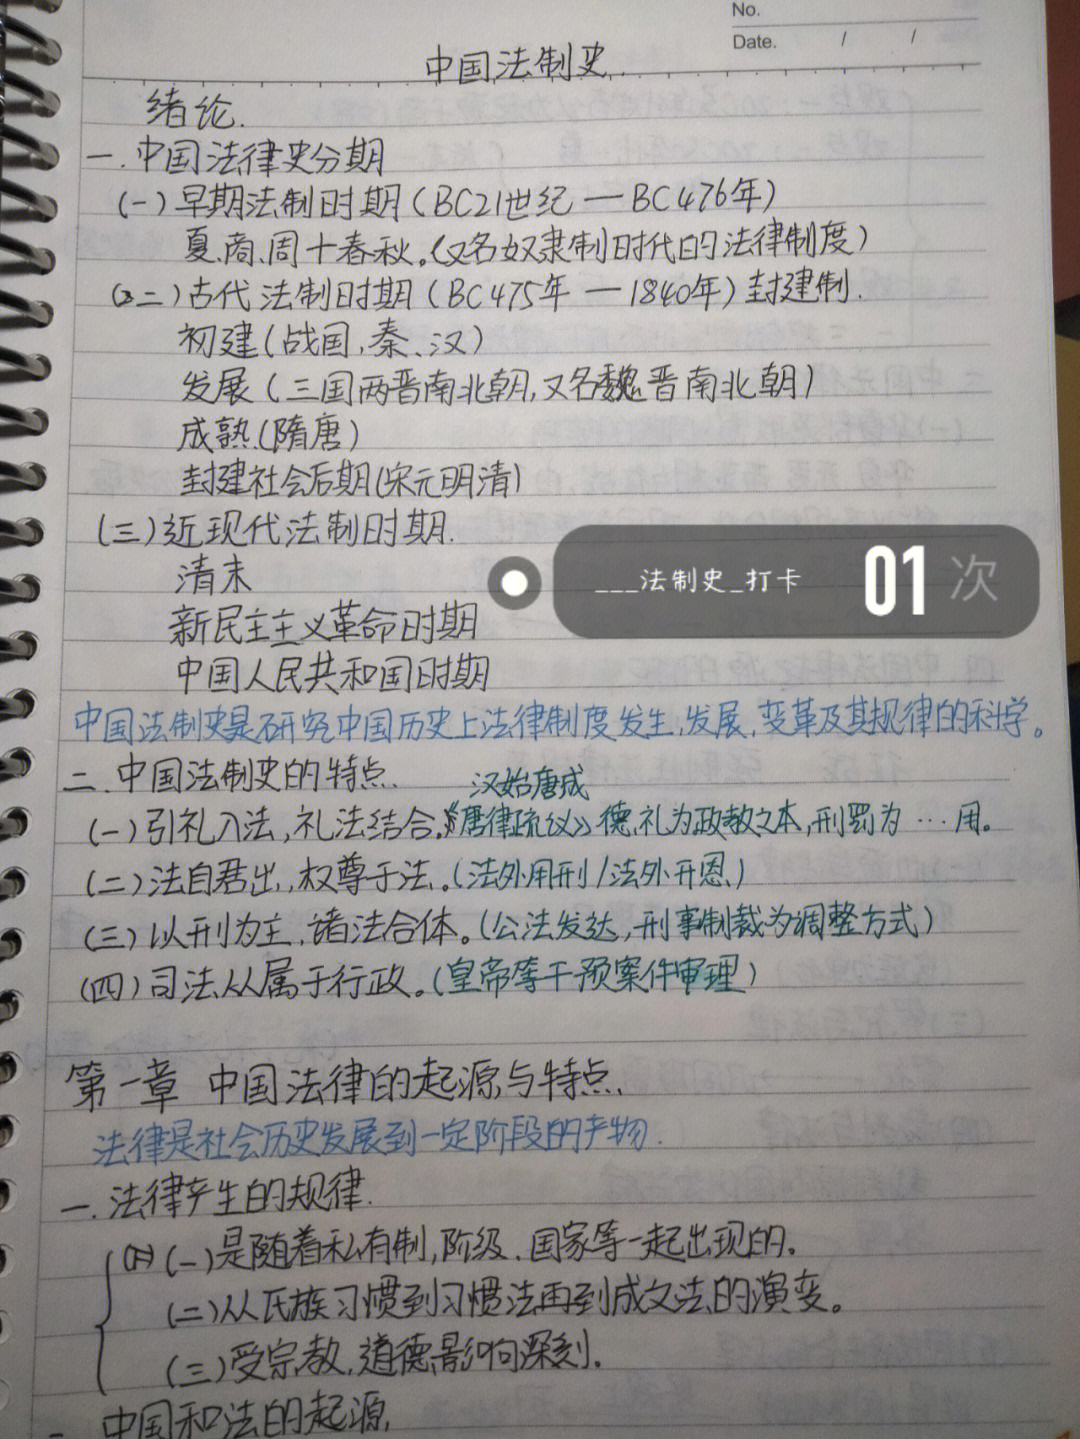 No.
Date. / /
中国法制史
绪论.
一.中国法律史分期
(一)早期法制时期(BC21世纪—BC476年)
夏、商、周+春秋。(又名奴隶制时代的法律制度)
(二)古代法制时期(BC475年—1840年)封建制.
初建(战国,秦、汉)
发展(三国两晋南北朝,又名魏晋南北朝)
成熟(隋唐)
封建社会后期(宋元明清)
(三)近现代法制时期.
清末
___法制史_打卡 01次
新民主主义革命时期
中国人民共和国时期
中国法制史是研究中国历史上法律制度发生,发展,变革及其规律的科学。
二.中国法制史的特点.
汉始唐成
(一)引礼入法,礼法结合。《唐律疏议》德,礼为政教之本,刑罚为…用。
(二)法自君出,权尊于法。(法外用刑/法外开恩)
(三)以刑为主,诸法合体。(公法发达,刑事制裁为调整方式)
(四)司法从属于行政。(皇帝等干预案件审理)
第一章 中国法律的起源与特点.
法律是社会历史发展到一定阶段的产物.
一.法律产生的规律.
(一)是随着私有制,阶级、国家等一起出现的。
(二)从氏族习惯到习惯法再到成文法的演变。
(三)受宗教,道德影响深刻.
中国和法的起源,